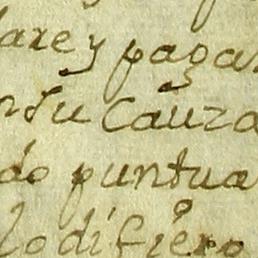 lare y pagar
nsu Cauza
do puntua
lo difiero